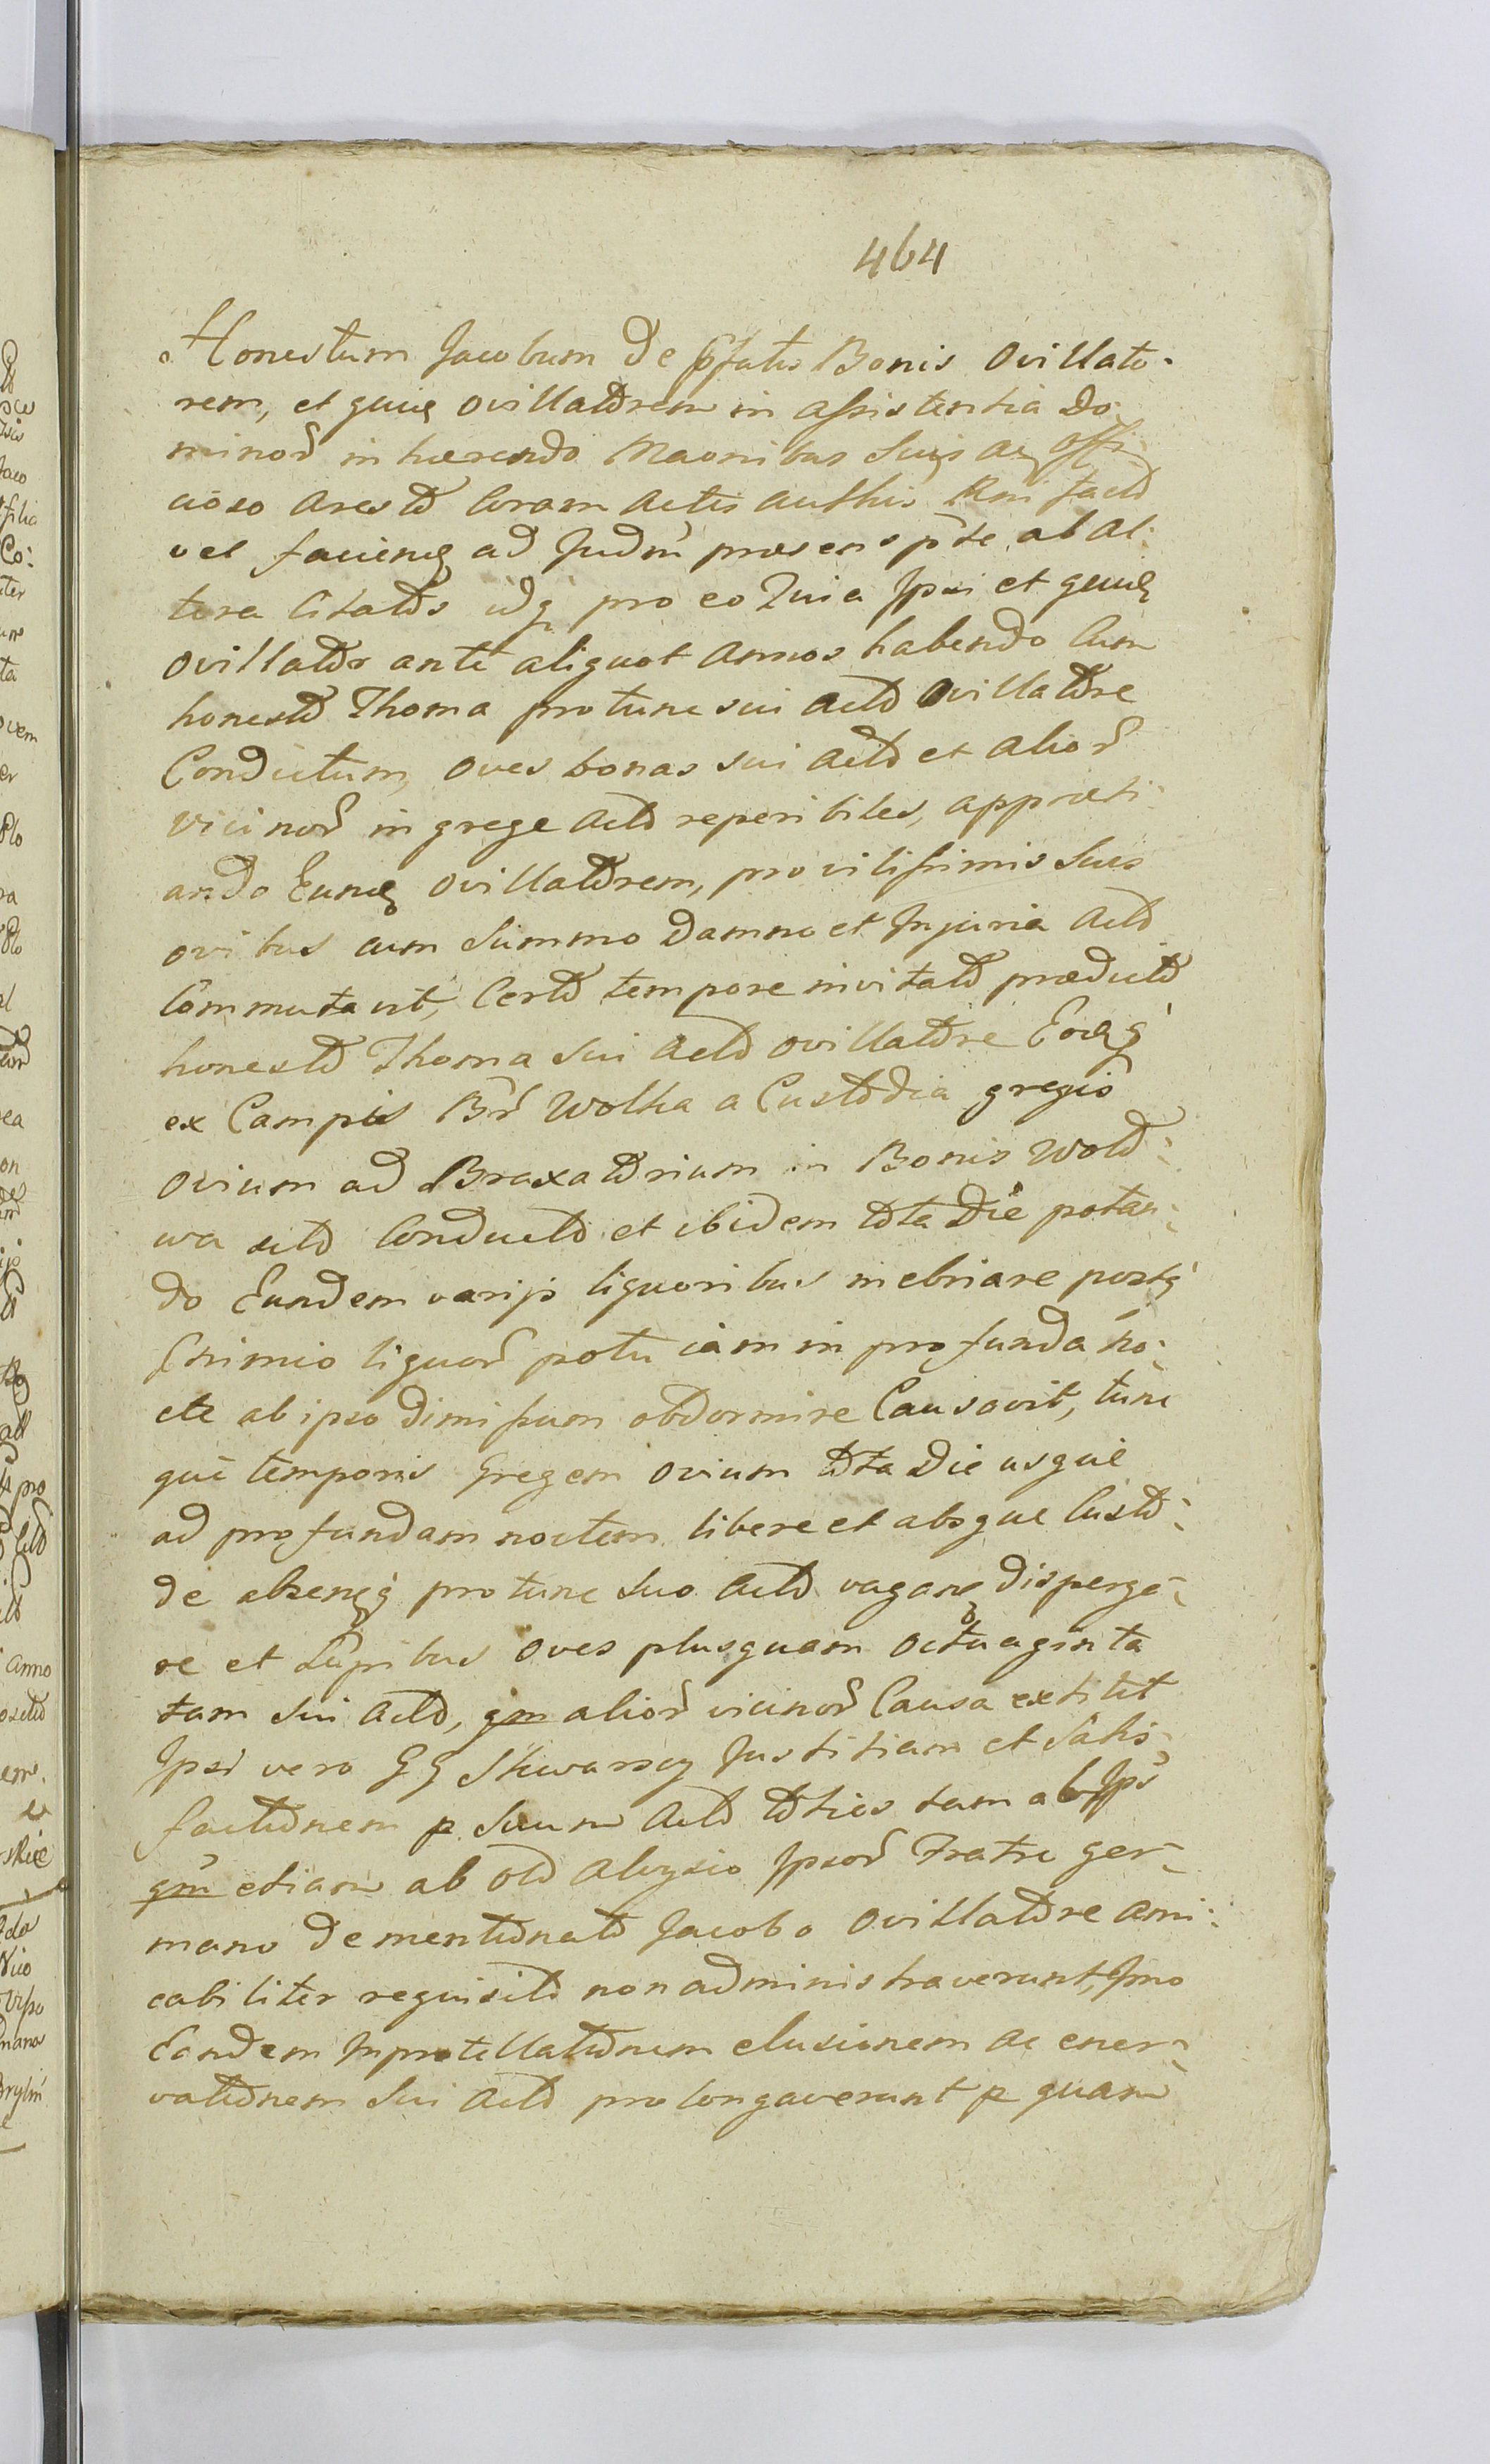 464
Honestum Jacobum de pfatis Bonis Ovillato-
rem, et gener ovillatorem in assistentia Do-
minor in hærendo Maonibus Suis ac offi-
cioso Aresto Coram Actis authis Rni facto
vel faciend ad Judm præsens pte ab al-
tera Citatos idq pro eo Quia Ipsi et gener
Ovillator ante aliquot Annos habendo Cum
honesto Thoma pro tunc sui Acto Ovillatore
Condictum, oves bonas sui Acto et alior
vicinor in grege Acto reperibiles, appreti-
ando Eund ovillatorem, pro vilissimis Suis
ovibus cum Summo Damno et Injuria Acto
Commutavit, Certo tempore invitato præducto
honesto Thoma Sui Acto ovillatore Eoqq
ex Campis Br Wolka a Custodia gregis
Ovium ad Braxatorium in Bonis Wold-
wa sito Conducto et ibidem tota Die potan-
do Eundem varijs liquoribus inebriare postq
Enimio liquor potu iam in profunda no-
cte ab ipso dimissum obdormire Causavit, tunc
que temporis Gregem ovium tota Die usque
ad profundam noctem libere et absque Custo-
de absenq pro tunc Suo Acto vagare disperge-
re et Lupibus oves plusquam octuaginta
tam Sui Acto, qm alior vicinor Causa extitit
Ipsi vero GG Skwarscy Justitiam et Satis-
factionem p Suum Acto toties tam ab Ips
qm etiam ab Olo Aloysio Ipsor Fratre ger-
mano de mentionato Jacobo Ovillatore ami-
cabiliter requisito non administraverunt, Imo
Eandem in protellationem elusionem ac ener-
vationem Sui Acto prolongaverunt p quam